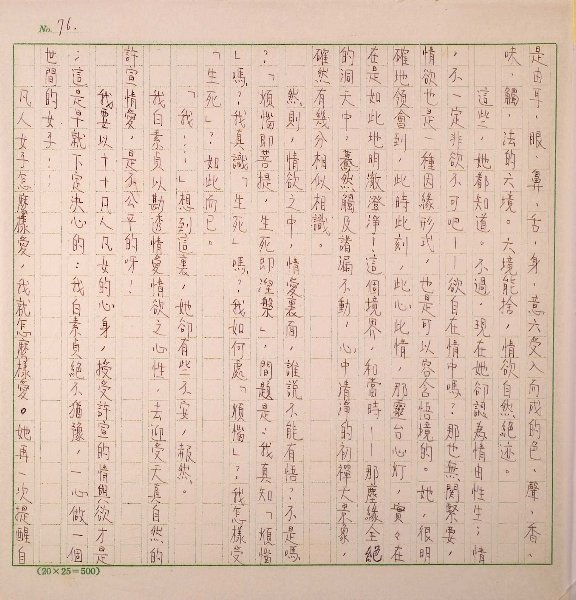 No. 76.
是由耳，眼，鼻，舌，身，意六受入而成的色，聲，香，
味，觸，法的六境。六境能捨，情欲自然絕迹。
這些，她都知道。不過，現在她卻認為情由性生；情
，不一定非欲不可吧！欲自在情中嗎？那也無關緊要，
情欲也是一種因緣形式，也是可以容含悟境的。她，很明
確地領會到，此時此刻，此心此情，那靈台心灯，實々在
在是如此地明澈澄淨！這個境界，和當時——那塵緣全絕
的洞天中，驀然觸及諸漏不動，心中清淨的初禪大景象，
確然有幾分相似相識。
然則，情欲之中，情愛裏面，誰說不能有悟？不是嗎
？「煩惱即菩提，生死即涅槃」，問題是：我真知「煩惱
」嗎？我真識「生死」嗎？我如何處「煩惱」？我怎樣受
「生死」？如此而已。
「我……」想到這裏，她卻有些不安，赧然。
我白素貞以勘透情愛情欲之心性，去迎受天真自然的
許宣情愛，是不公平的呀！
我要以十十足凡人凡女的心身，接受許宣的情與欲才是
；這是早就下定決心的：我白素貞絕不猶豫，一心做一個
世間的女子！
凡人女子怎麼樣愛，我就怎麼樣愛。她再一次提醒自
(20×25＝500)